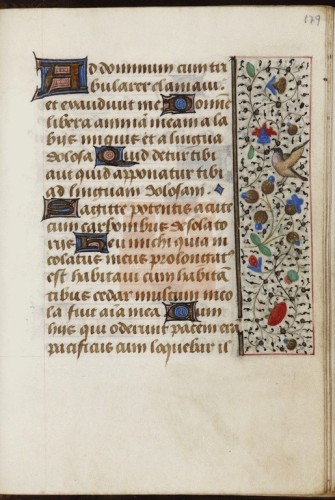 179
Ad dominum cum tri
bularer clamaui.
et exaudiuit me Domine
libera animā meam a la
bus iniquis et a lingua
dolosa Quid detur tibi
aut quid apponatur tibi
ad linguam dolosam.
Sagitte potentis acute
cum carbonibus desolato
rijs Heu michi quia in
colatus meus prolongat
est habitaui cum habitā
tibus cedar multum inco
la fuit aīa mea Cum
hijs qui oderunt pacem erā
pacificus cum loquebar il